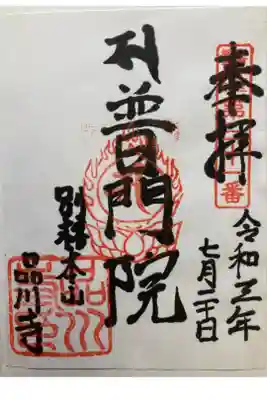 奉拝
令和五年
七月二十日
普門院
別格本山
品川寺